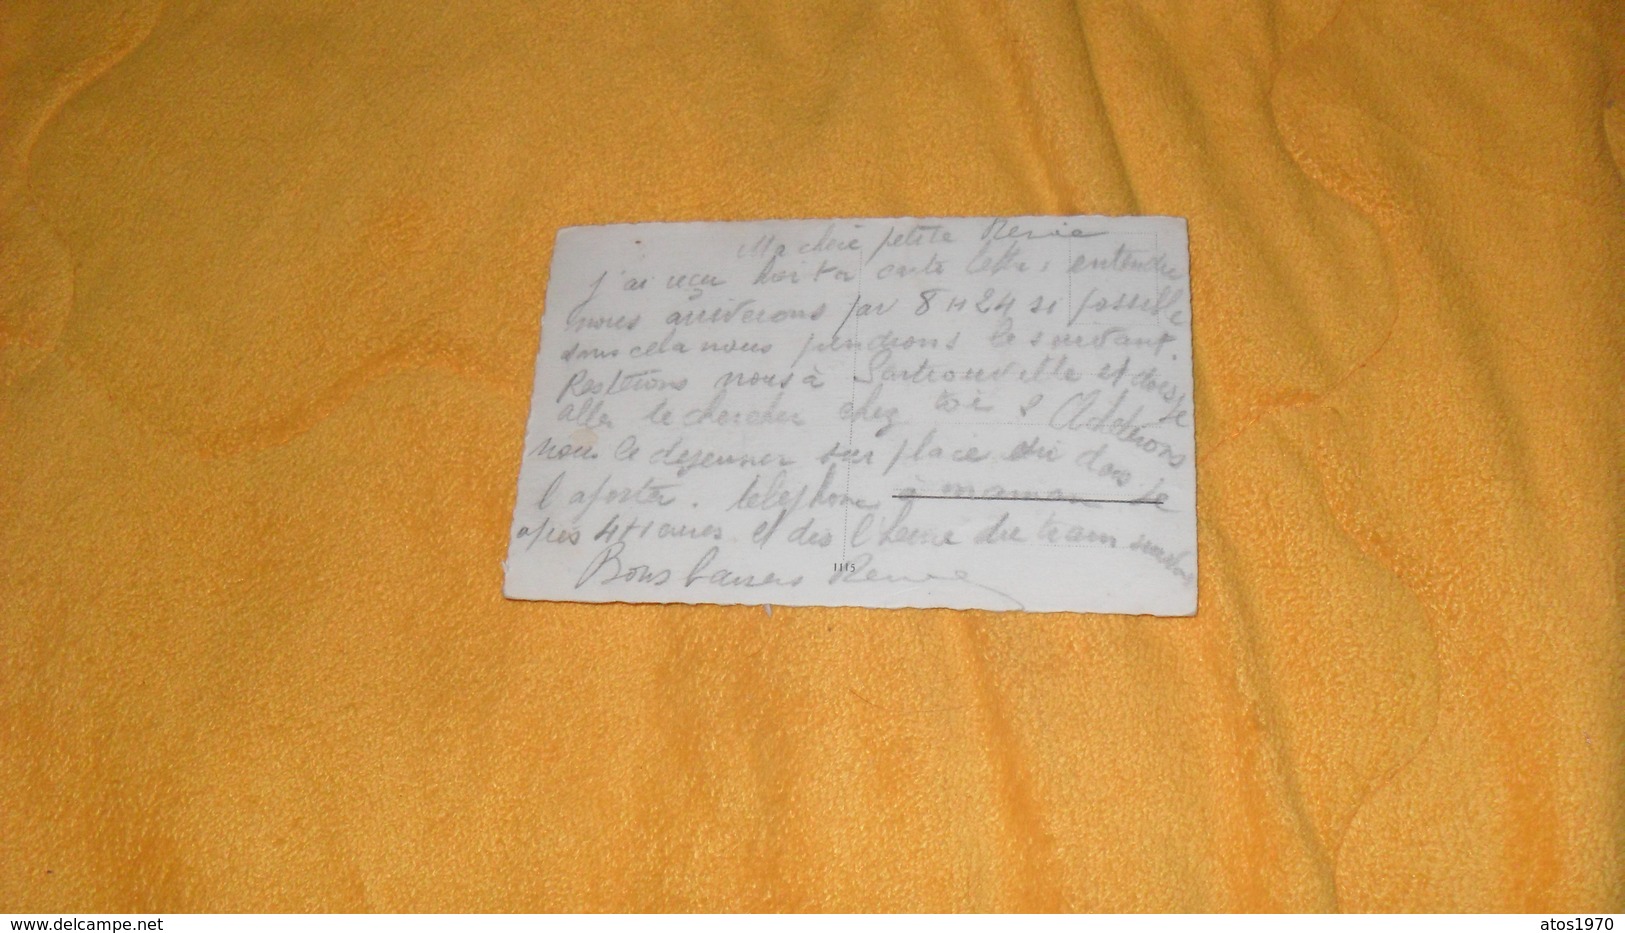 Ma chère petite Renée
j'ai reçu hier ta carte lettre : entendu
nous arriverons par 8 H 24 si possible
sans cela nous prendrons le suivant.
Resterons nous à Sartrouville et dois je
aller te chercher chez toi &
nous le dejeuner sur place ou dois je
l'aporter. telephone à maman
apres 4 Heures et dis l'heure du train
Bons baisers Renée
1115
www.delcampe.net
atos1970